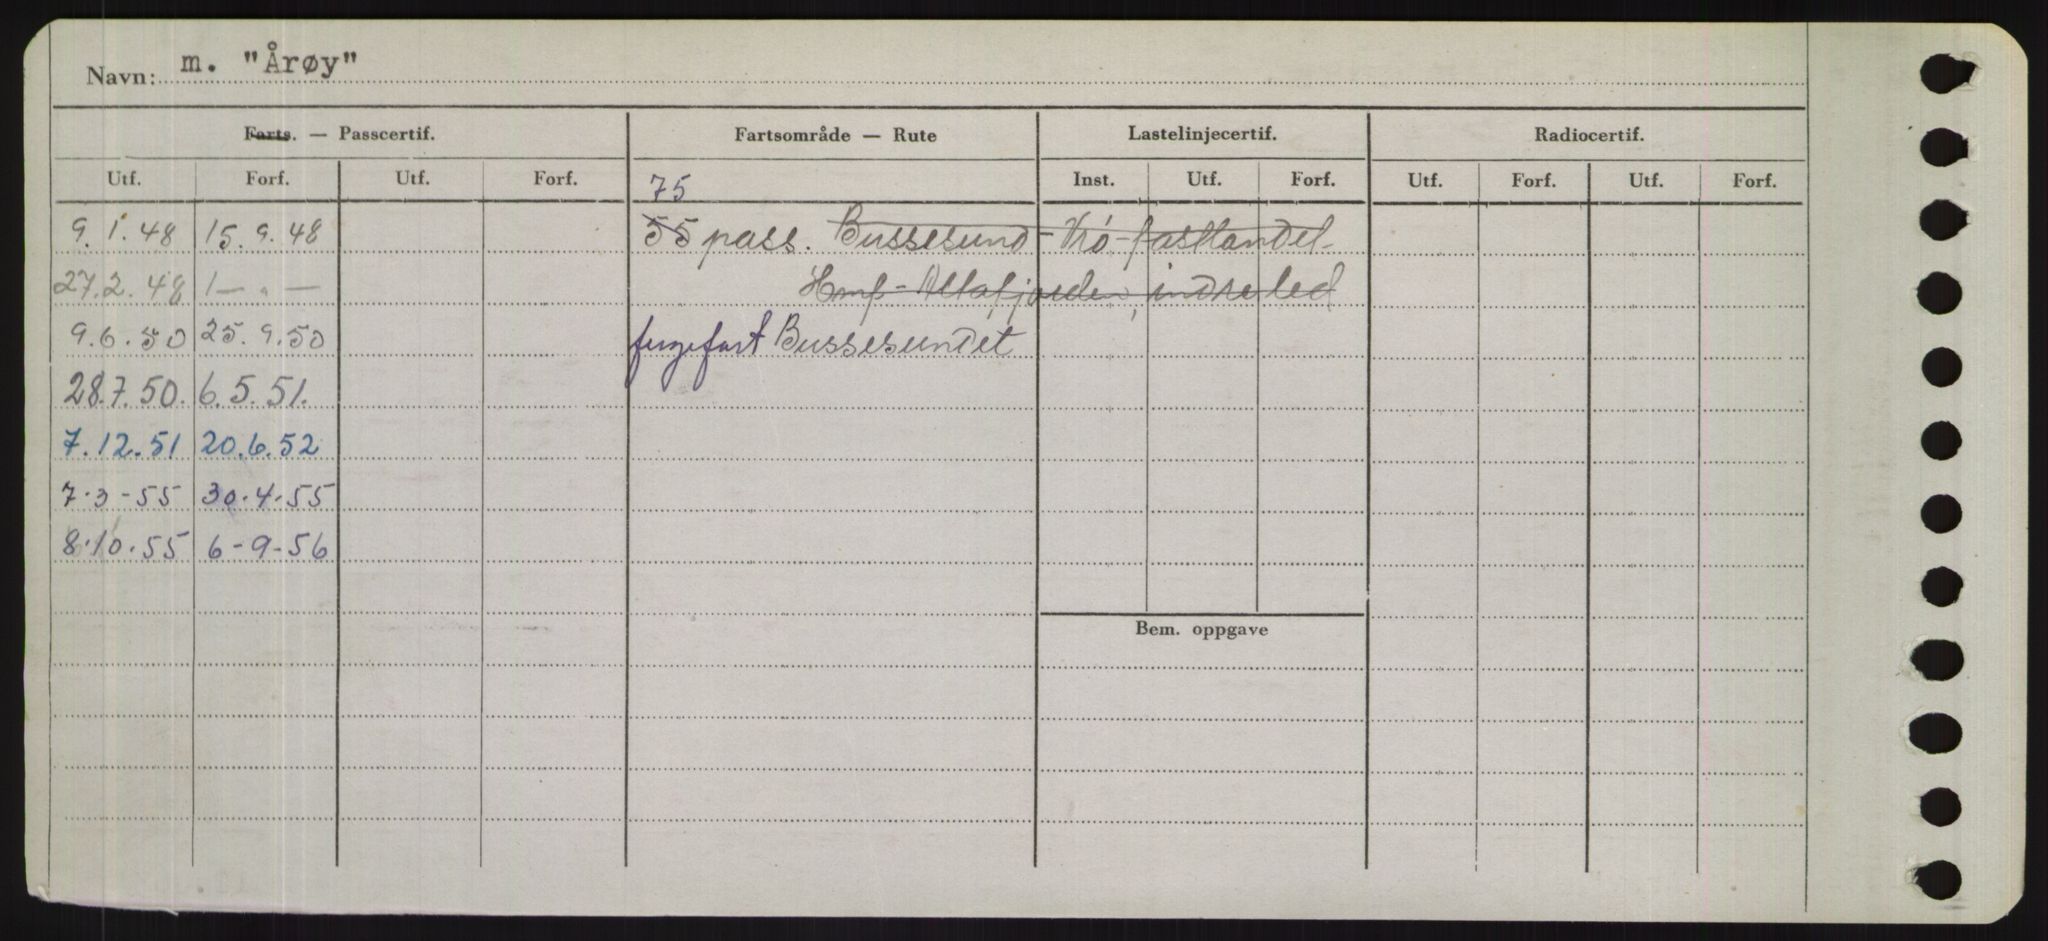 Navn: m. "Årøy"
Farts. — Passcertif. Fartsområde — Rute Lastelinjecertif. Radiocertif.
Utf. Forf. Utf. Forf. 75 Inst. Utf. Forf. Utf. Forf. Utf. Forf.
9.1.48 15.9.48 55 pass. Bussesund - - fastlandet
27.2.48 1— " — Hmf - Altafjorden, indre led
9.6.50 25.9.50 fergefart Bussesundet
28.7.50. 6.5.51.
7.12.51 20.6.52
7.3-55 30.4.55
8.10.55 6-9-56
Bem. oppgave